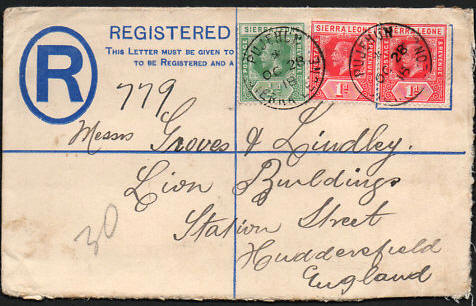 REGISTERED
THIS LETTER MUST BE GIVEN TO
TO BE REGISTERED AND A
R
SIERRA LEONE
SIERRA LEONE
SIERRA LEONE
POSTAGE
REVENUE
1d
1d
OC 28
15
SIERRA
OC 28
15
779
Messrs Groves & Lindley.
Lion Buildings
Station Street
Huddersfield
England
30